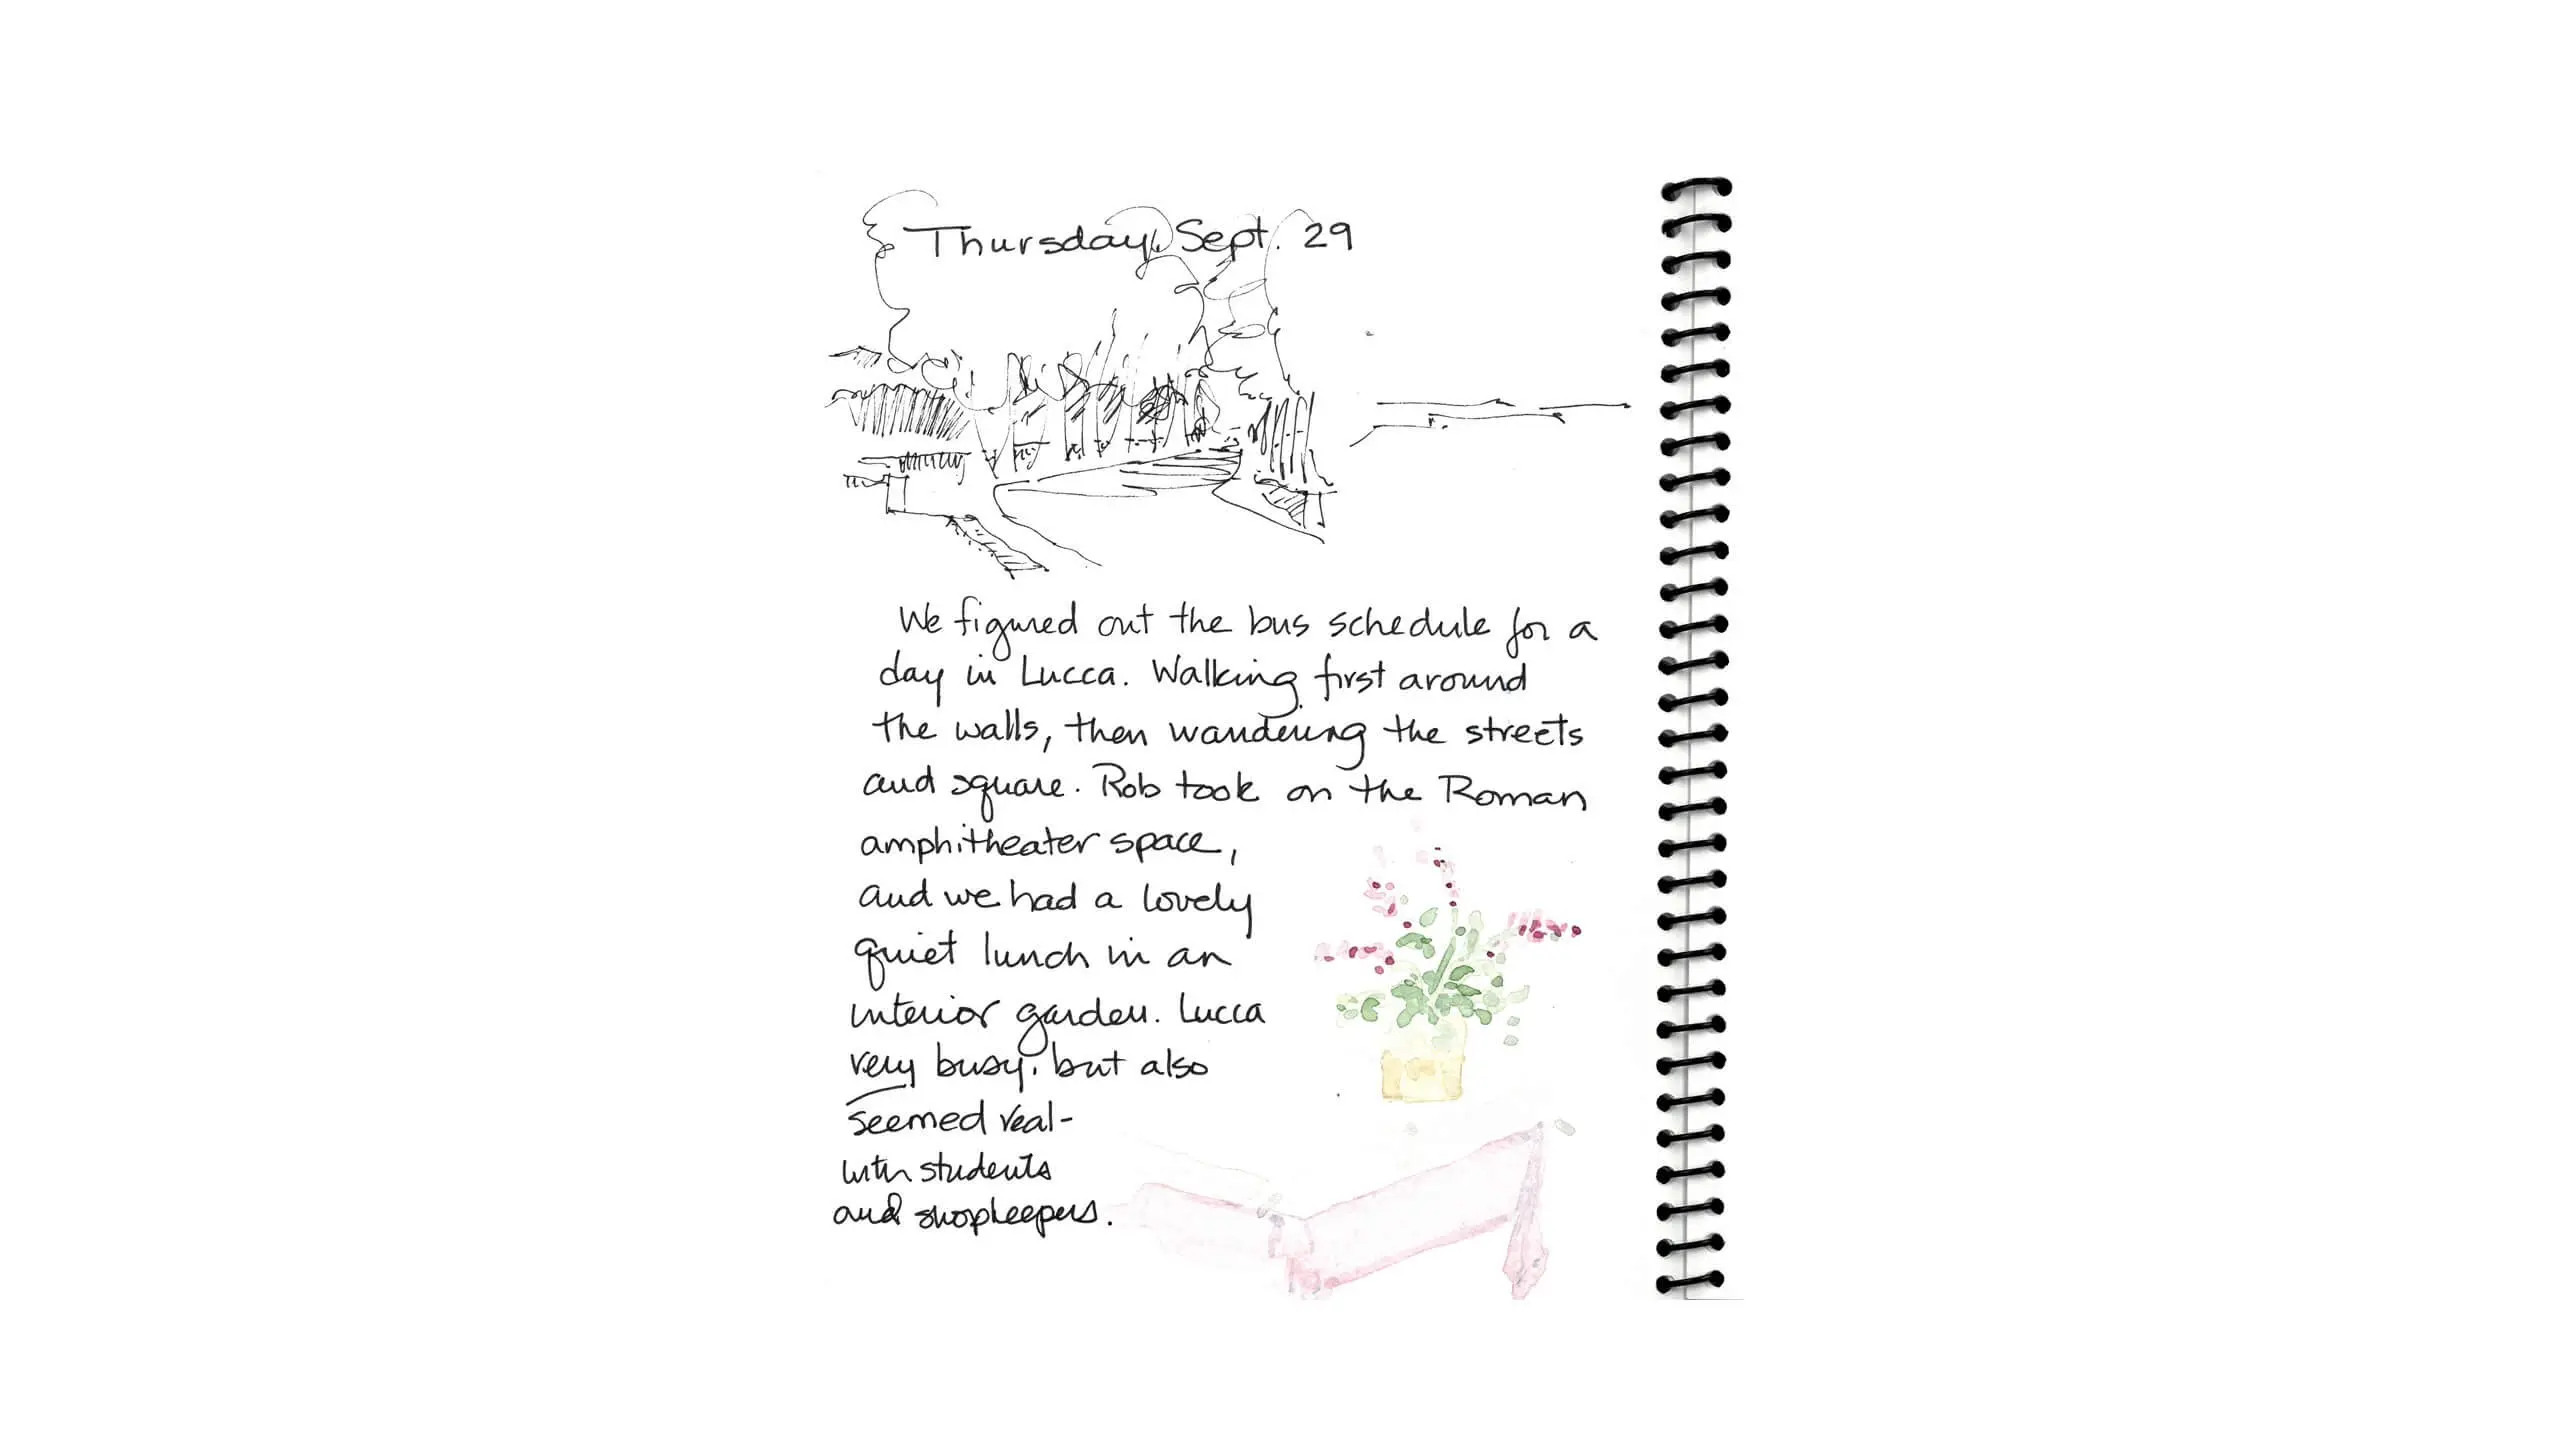 Thursday, Sept. 29
We figured out the bus schedule for a
day in Lucca. Walking first around
the walls, then wandering the streets
and square. Rob took on the Roman
amphitheater space,
and we had a lovely
quiet lunch in an
interior garden. Lucca
very busy, but also
seemed real-
with students
and shopkeepers.